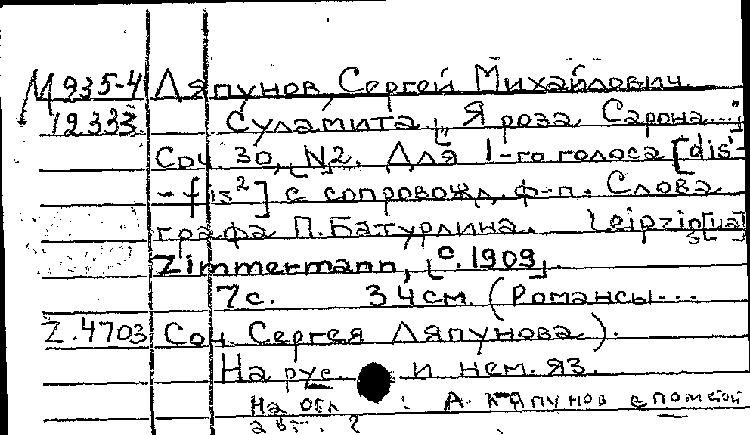 М935-4 Ляпунов, Сергей Михайлович.
12333 Суламита [„Я роза Сарона..."]
Соч. 30, N2. Для 1-го голоса [dis¹-
-fis²] с сопровожд. ф-п. Слова
графа П. Батурлина. Leipzig [ua]
Zimmermann, [c. 1909].
7 с. 34 см. (Романсы...
Z.4703 Соч. Сергея Ляпунова).
На рус. и нем. яз.
На обл : Ляпунов с пометой